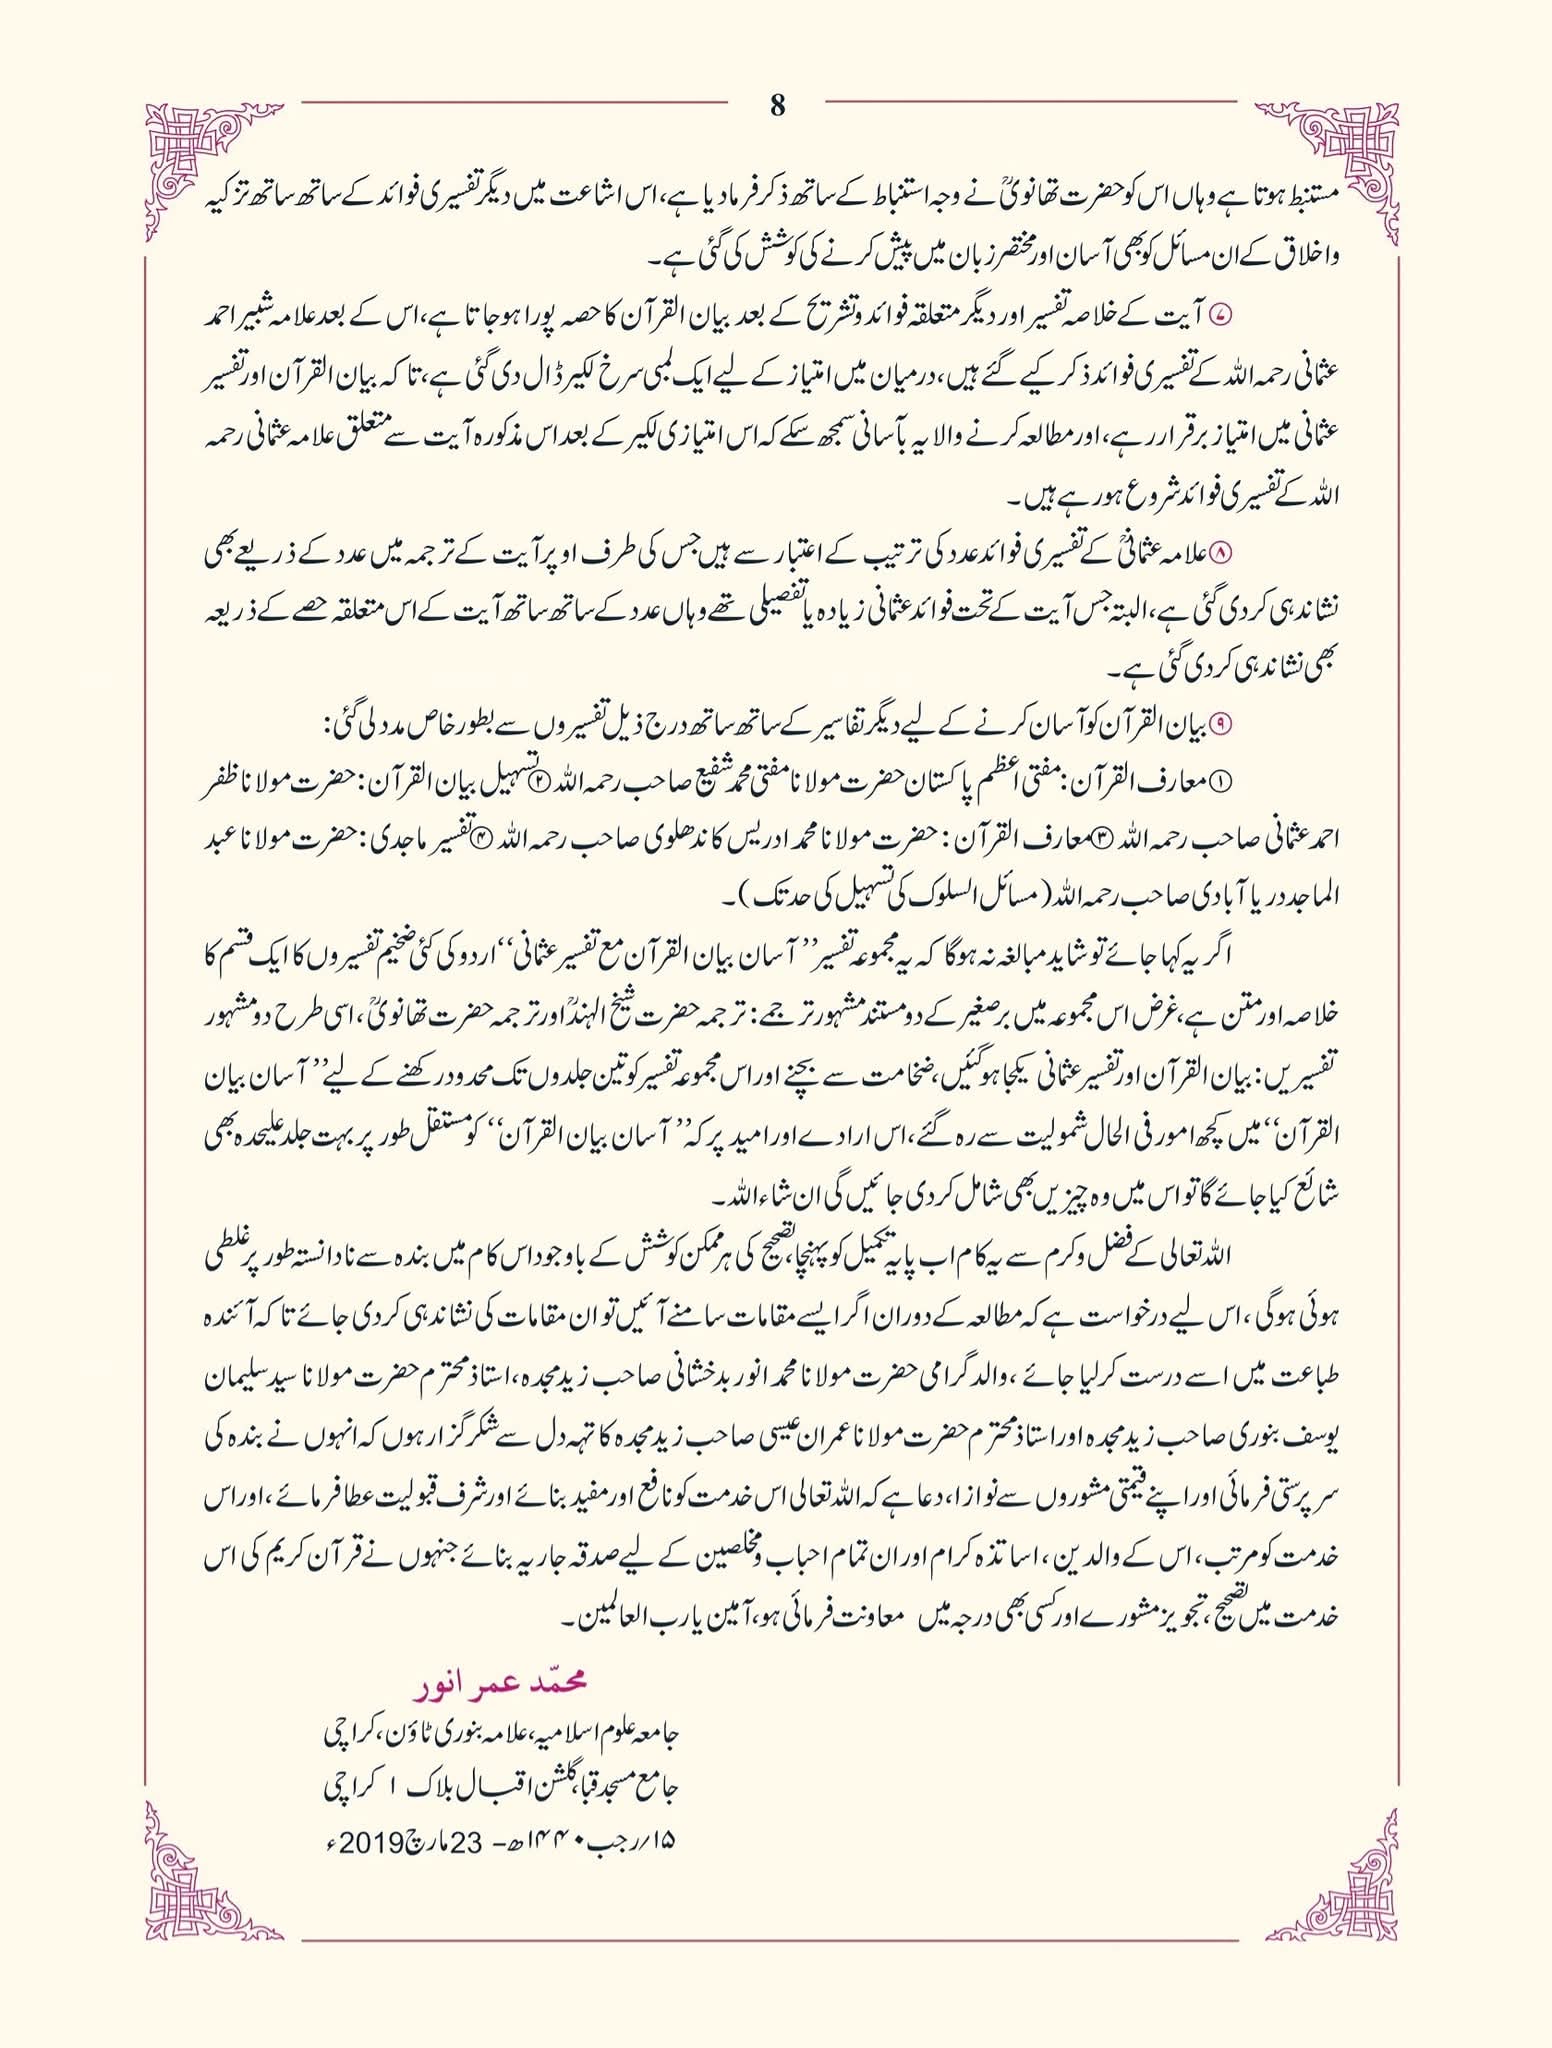 8
مستنبط ہوتا ہے وہاں اس کو حضرت تھانویؒ نے وجہ استنباط کے ساتھ ذکر فرما دیا ہے، اس اشاعت میں دیگر تفسیری فوائد کے ساتھ ساتھ تزکیہ
واخلاق کے ان مسائل کو بھی آسان اور مختصر زبان میں پیش کرنے کی کوشش کی گئی ہے۔
⑦ آیت کے خلاصہ تفسیر اور دیگر متعلقہ فوائد و تشریح کے بعد بیان القرآن کا حصہ پورا ہو جاتا ہے، اس کے بعد علامہ شبیر احمد
عثمانی رحمہ اللہ کے تفسیری فوائد ذکر کیے گئے ہیں، درمیان میں امتیاز کے لیے ایک لمبی سرخ لکیر ڈال دی گئی ہے، تاکہ بیان القرآن اور تفسیر
عثمانی میں امتیاز برقرار رہے، اور مطالعہ کرنے والا یہ بآسانی سمجھ سکے کہ اس امتیازی لکیر کے بعد اس مذکورہ آیت سے متعلق علامہ عثمانی رحمہ
اللہ کے تفسیری فوائد شروع ہو رہے ہیں۔
⑧ علامہ عثمانیؒ کے تفسیری فوائد عدد کی ترتیب کے اعتبار سے ہیں جس کی طرف اوپر آیت کے ترجمہ میں عدد کے ذریعے بھی
نشاندہی کر دی گئی ہے، البتہ جس آیت کے تحت فوائد عثمانی زیادہ یا تفصیلی تھے وہاں عدد کے ساتھ ساتھ آیت کے اس متعلقہ حصے کے ذریعہ
بھی نشاندہی کر دی گئی ہے۔
⑨ بیان القرآن کو آسان کرنے کے لیے دیگر تفاسیر کے ساتھ ساتھ درج ذیل تفسیروں سے بطور خاص مدد لی گئی:
① معارف القرآن: مفتی اعظم پاکستان حضرت مولانا مفتی محمد شفیع صاحب رحمہ اللہ ② تسہیل بیان القرآن: حضرت مولانا ظفر
احمد عثمانی صاحب رحمہ اللہ ③ معارف القرآن: حضرت مولانا محمد ادریس کاندھلوی صاحب رحمہ اللہ ④ تفسیر ماجدی: حضرت مولانا عبد
الماجد دریا آبادی صاحب رحمہ اللہ (مسائل السلوک کی تسہیل کی حد تک)۔
اگر یہ کہا جائے تو شاید مبالغہ نہ ہوگا کہ یہ مجموعہ تفسیر ’’آسان بیان القرآن مع تفسیر عثمانی‘‘ اردو کی کئی ضخیم تفسیروں کا ایک قسم کا
خلاصہ اور متن ہے، غرض اس مجموعہ میں برصغیر کے دو مستند مشہور ترجمے: ترجمہ حضرت شیخ الہندؒ اور ترجمہ حضرت تھانویؒ، اسی طرح دو مشہور
تفسیریں: بیان القرآن اور تفسیر عثمانی یکجا ہو گئیں، ضخامت سے بچنے اور اس مجموعہ تفسیر کو تین جلدوں تک محدود رکھنے کے لیے ’’آسان بیان
القرآن‘‘ میں کچھ امور فی الحال شمولیت سے رہ گئے، اس ارادے اور امید پر کہ ’’آسان بیان القرآن‘‘ کو مستقل طور پر بہت جلد علیحدہ بھی
شائع کیا جائے گا تو اس میں وہ چیزیں بھی شامل کر دی جائیں گی ان شاء اللہ۔
اللہ تعالی کے فضل و کرم سے یہ کام اب پایہ تکمیل کو پہنچا، تصحیح کی ہر ممکن کوشش کے باوجود اس کام میں بندہ سے نادانستہ طور پر غلطی
ہوئی ہوگی، اس لیے درخواست ہے کہ مطالعہ کے دوران اگر ایسے مقامات سامنے آئیں تو ان مقامات کی نشاندہی کر دی جائے تاکہ آئندہ
طباعت میں اسے درست کر لیا جائے، والد گرامی حضرت مولانا محمد انور بدخشانی صاحب زید مجدہ، استاذ محترم حضرت مولانا سید سلیمان
یوسف بنوری صاحب زید مجدہ اور استاذ محترم حضرت مولانا عمران عیسی صاحب زید مجدہ کا تہہ دل سے شکر گزار ہوں کہ انہوں نے بندہ کی
سرپرستی فرمائی اور اپنے قیمتی مشوروں سے نوازا، دعا ہے کہ اللہ تعالی اس خدمت کو نافع اور مفید بنائے اور شرف قبولیت عطا فرمائے، اور اس
خدمت کو مرتب، اس کے والدین، اساتذہ کرام اور ان تمام احباب و مخلصین کے لیے صدقہ جاریہ بنائے جنہوں نے قرآن کریم کی اس
خدمت میں تصحیح، تجویز مشورے اور کسی بھی درجہ میں معاونت فرمائی ہو، آمین یا رب العالمین۔
محمّد عمر انور
جامعہ علوم اسلامیہ، علامہ بنوری ٹاؤن، کراچی
جامع مسجد قبا، گلشن اقبال بلاک ۱ کراچی
۱۵/رجب ۱۴۴۰ھ – 23 مارچ 2019ء